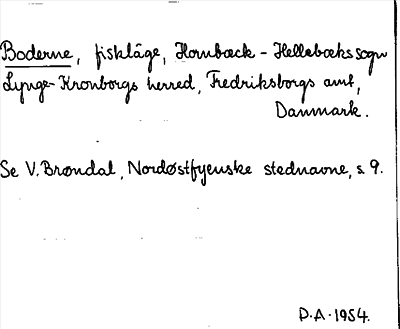 Boderne, fiskläge, Hornbæk - Hellebæks sogn
Lynge-Kronborgs herred, Fredriksborgs amt,
Danmark.
Se V. Brøndal, Nordøstfyenske stednavne, s. 9.
D.A. 1954.